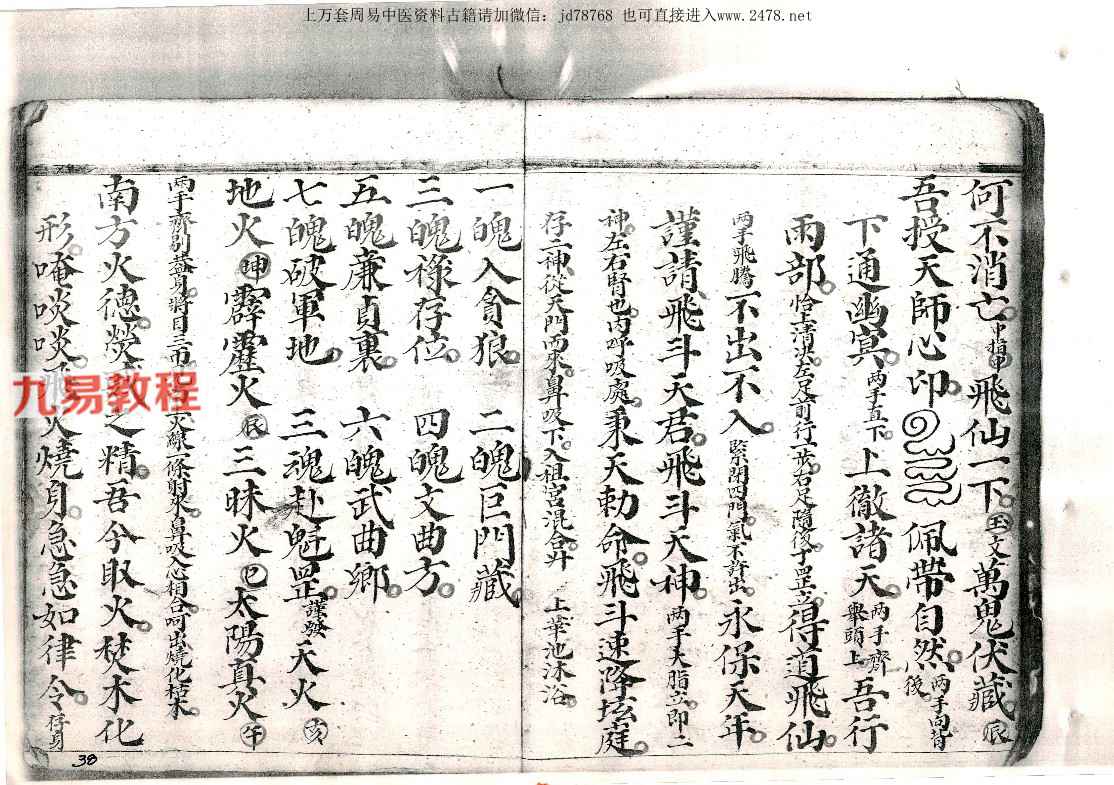 上万套周易中医资料古籍请加微信：jd78768 也可直接进入www.2478.net
何不消亡中指甲飛仙一下玉文萬鬼伏藏辰
吾授天師心印 佩帶自然两手向背後
下通幽冥两手直下上徹諸天两手齊舉頭上吾行
雨部怡上清決左足前行一步右足隨後丁罡立得道飛仙
两手飛騰不出不入緊閉四門氣不許出永保天年
謹請飛斗天君飛斗天神两手大指立即二
神左右腎也内呼吸處秉天勅命飛斗速降坛庭
存二神從天門而來鼻吸下入祖宮混合升 上華池沐浴
一魄入貪狼 二魄巨門藏
三魄祿存位 四魄文曲方
五魄廉貞裏 六魄武曲鄉
七魄破軍地 三魂赴魁罡謹發天火亥
地火坤霹靂火辰三昧火巳太陽真火午
两手齊別 身将目三 火線一條射來鼻吸入心相合呵出燒化枯木
南方火德熒 之精吾今取火焚木化
形唵啖啖 火燒身急急如律令存身
九易教程
38